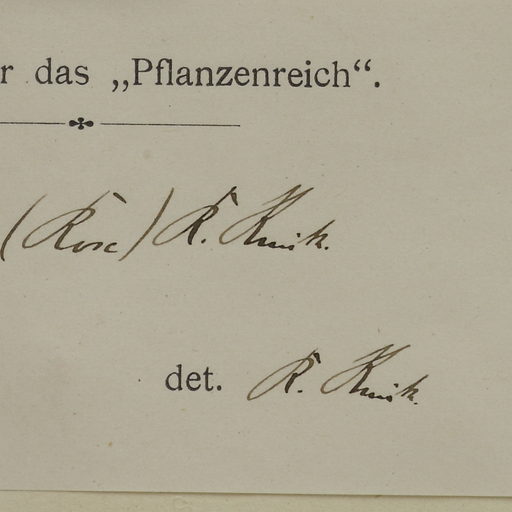 r das „Pflanzenreich“.
(Rose) R. Knuth.
det. R. Knuth.